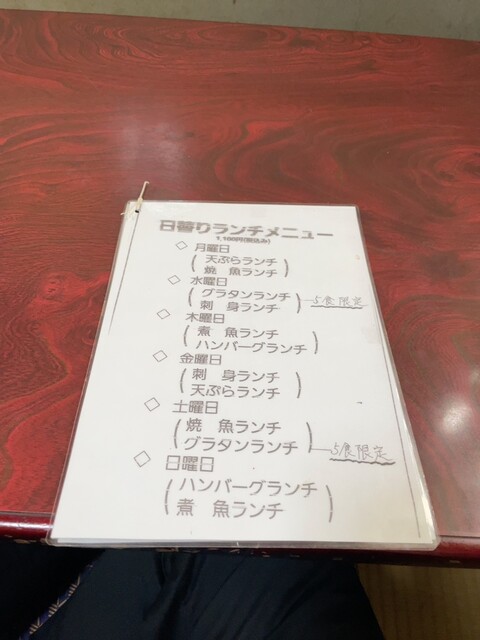 日替りランチメニュー
1,100円(税込み)
◇ 月曜日
(天ぷらランチ
焼 魚ランチ)
◇ 水曜日
(グラタンランチ 5食限定
刺 身ランチ)
◇ 木曜日
(煮 魚ランチ
ハンバーグランチ)
◇ 金曜日
(刺 身ランチ
天ぷらランチ)
◇ 土曜日
(焼 魚ランチ
グラタンランチ) 5食限定
◇ 日曜日
(ハンバーグランチ
煮 魚ランチ)